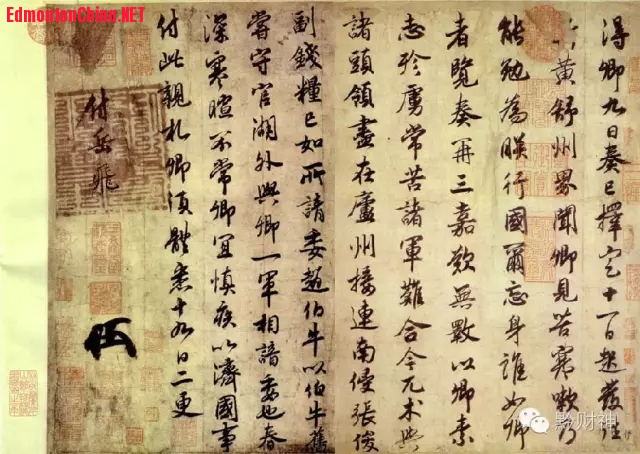 得卿九日奏已擇定十一日起發往
蘄黃舒州界聞卿見苦寒嗽乃
能勉為朕行國爾忘身誰如卿
者覽奏再三嘉歎無斁以卿素
志殄虜常苦諸軍難合今兀术與
諸頭領盡在廬州接連南侵張俊
副錢糧已如所請委趙伯牛以伯牛舊
嘗守官湖外與卿一軍相諳委也春
深寒暄不常卿宜慎疾以濟國事
付此親札卿須體悉十九日二更
付岳飛
EdmontonChina.NET
黔财神